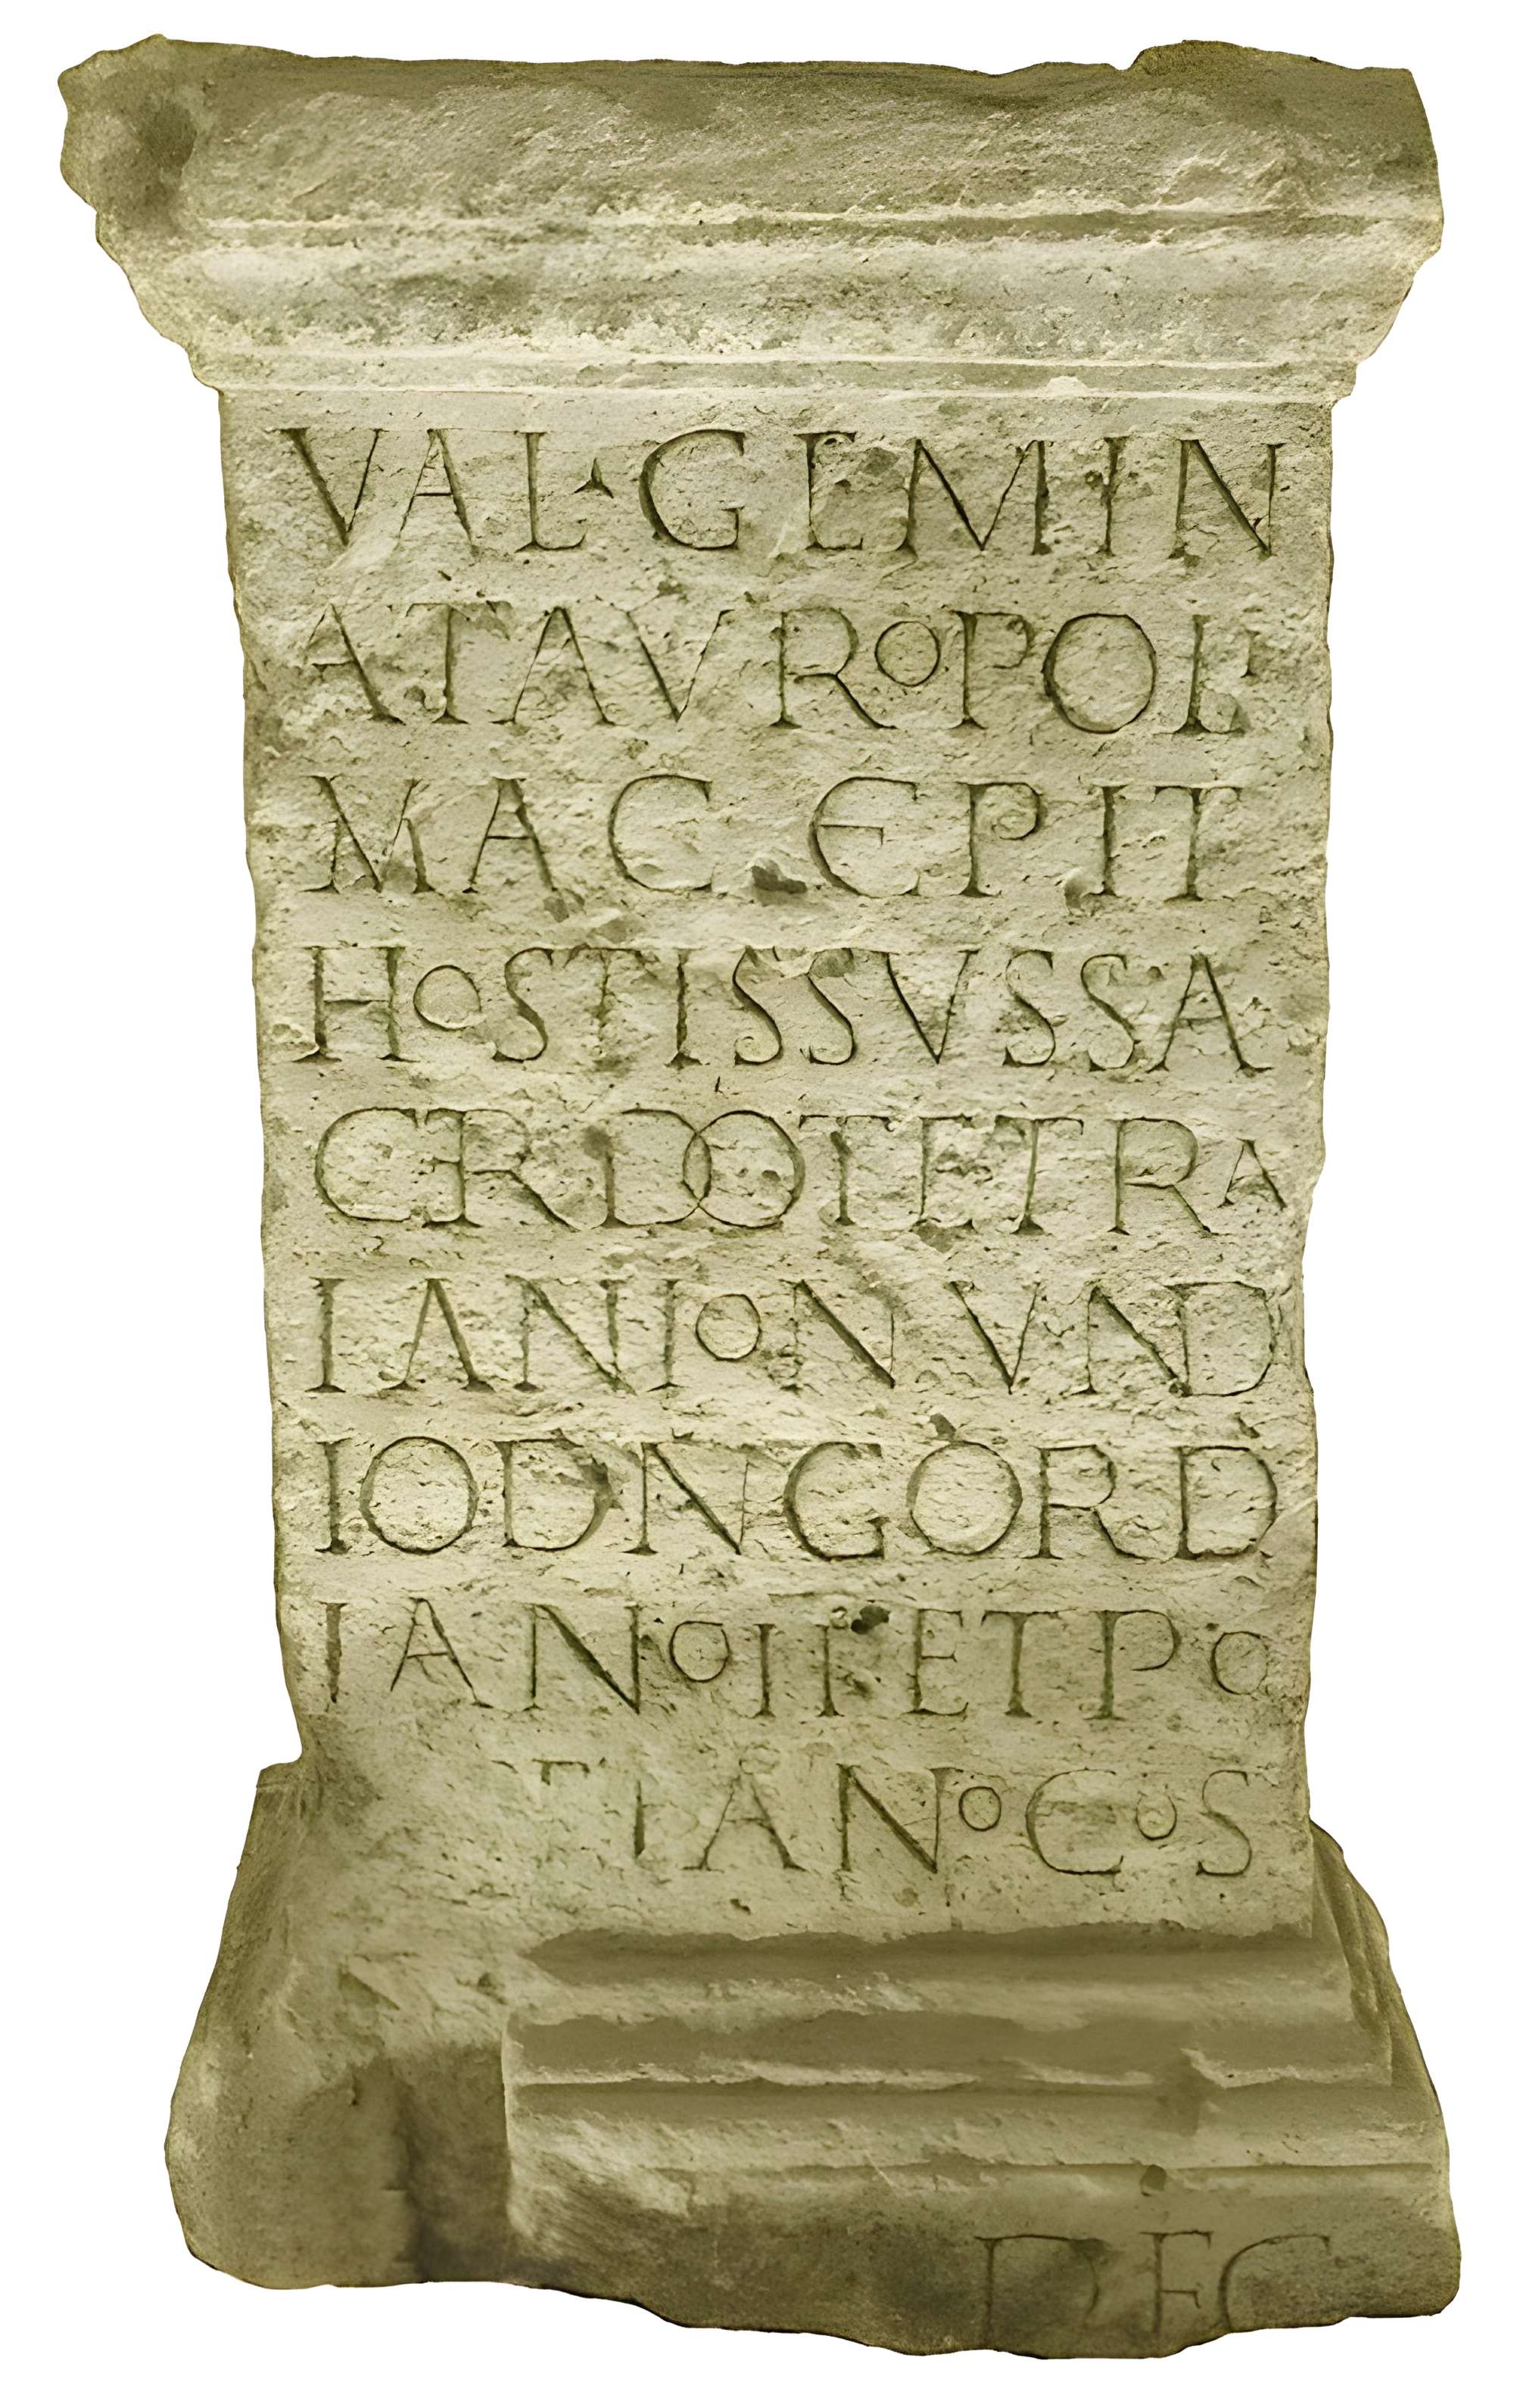 VAL·GEMIN
ATAVROPOL
MAC·EPIT
HOSTISSVSSA
CERDOTETRA
IANION·VND
IODNGORD
IANOIIETPO
TIANOCOS
DEC